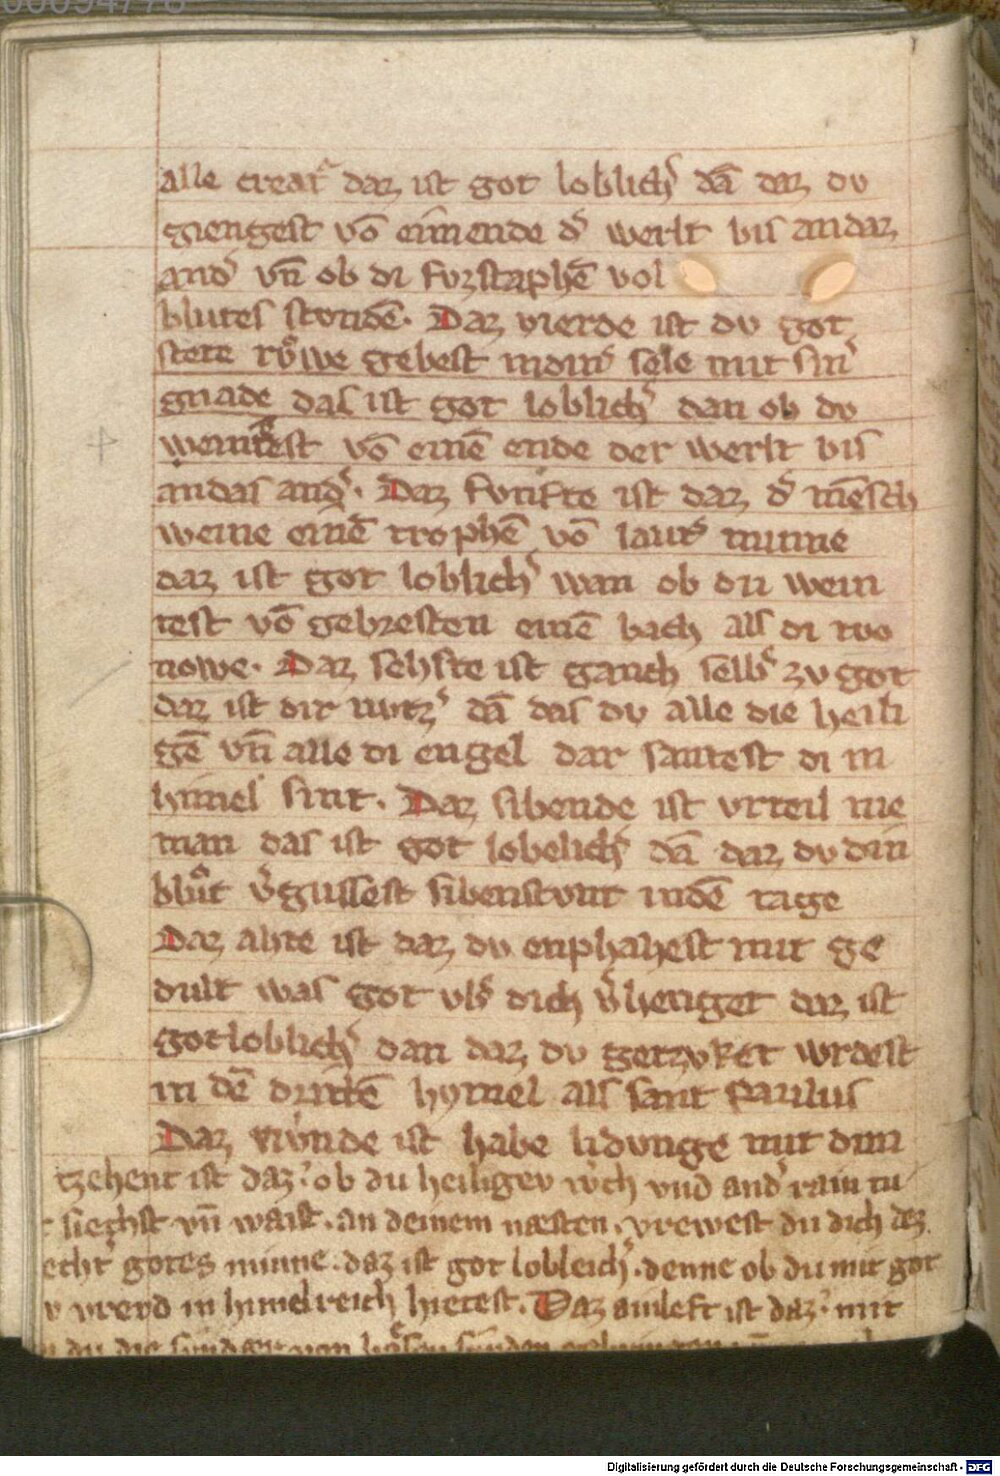 alle creat᷑ daz ist got loblich᷑ dā daz du
giengest vō eimende d᷑ werlt bis andaz
and᷑ vn̄ ob di fvzstaphē vol
blutes stvndē. Daz vierde ist du got
stete rvͦwe gebest in dein᷑ sele mit sin᷑
gnade das ist got loblich᷑ dan ob du
weintest vō einē ende der werlt bis
andas and᷑. Daz fvnfte ist daz d᷑ mēsch
weine einē trophē vō laut᷑ minne
daz ist got loblich᷑ wan ob du wein
test vō gebresten einē bach als di tvo
nowe. Daz sehste ist ganch selb᷑ zv got
daz ist dir nutz᷑ dā das du alle die heili
gē vn̄ alle di engel dar santest di in
himel sint. Daz sibende ist vrteil nie
man das ist got lobelich᷑ dā daz du din
blvͦt v᷑gussest sibenstvnt indē tage
Daz ahte ist daz du enphahest mit ge
dult was got vb᷑ dich v᷑henget daz ist
got loblich᷑ dan daz du getzvket wrdest
in dē dritten hymel als sant Paulus
Daz nivnde ist habe lidvnge mit dim
tzehent ist daz. ob du heiliger vnd and᷑ rain tu
siechst vn̄ waist. an deinem næsten. vrewest du dich dez
gotes minne. daz ist got lobleich᷑. denne ob du mit got
vrevd in himelreich hietest. Daz ainleft ist daz. mit